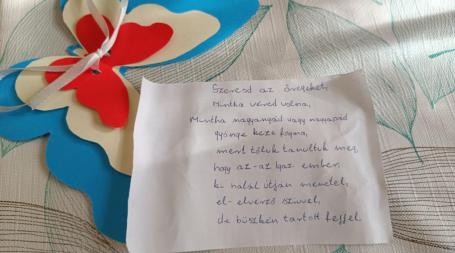 Szeresd az öregeket,
Mintha véred volna,
Mintha nagyanyád vagy nagyapád
gyönge keze fogna,
mert tőlük tanultuk meg,
hogy az-az igaz ember,
ki halál útján menetel,
el-elverző szívvel,
de büszkén tartott fejjel.